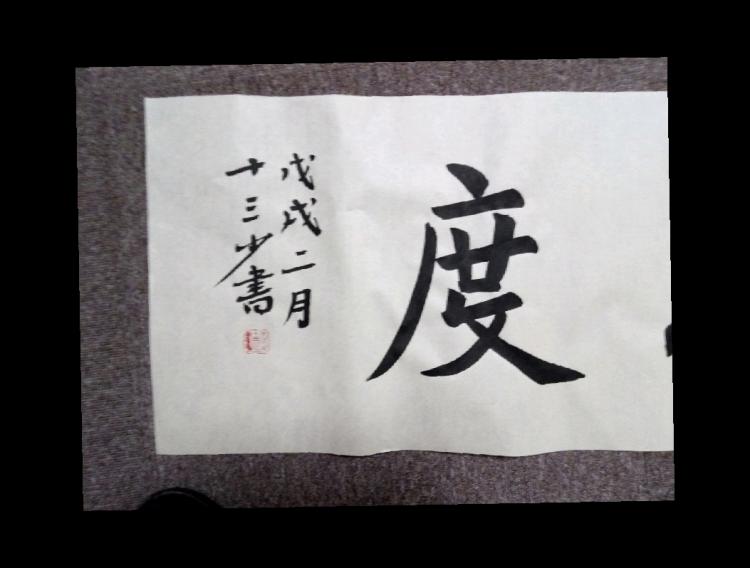 度
戊戌二月
十三少書